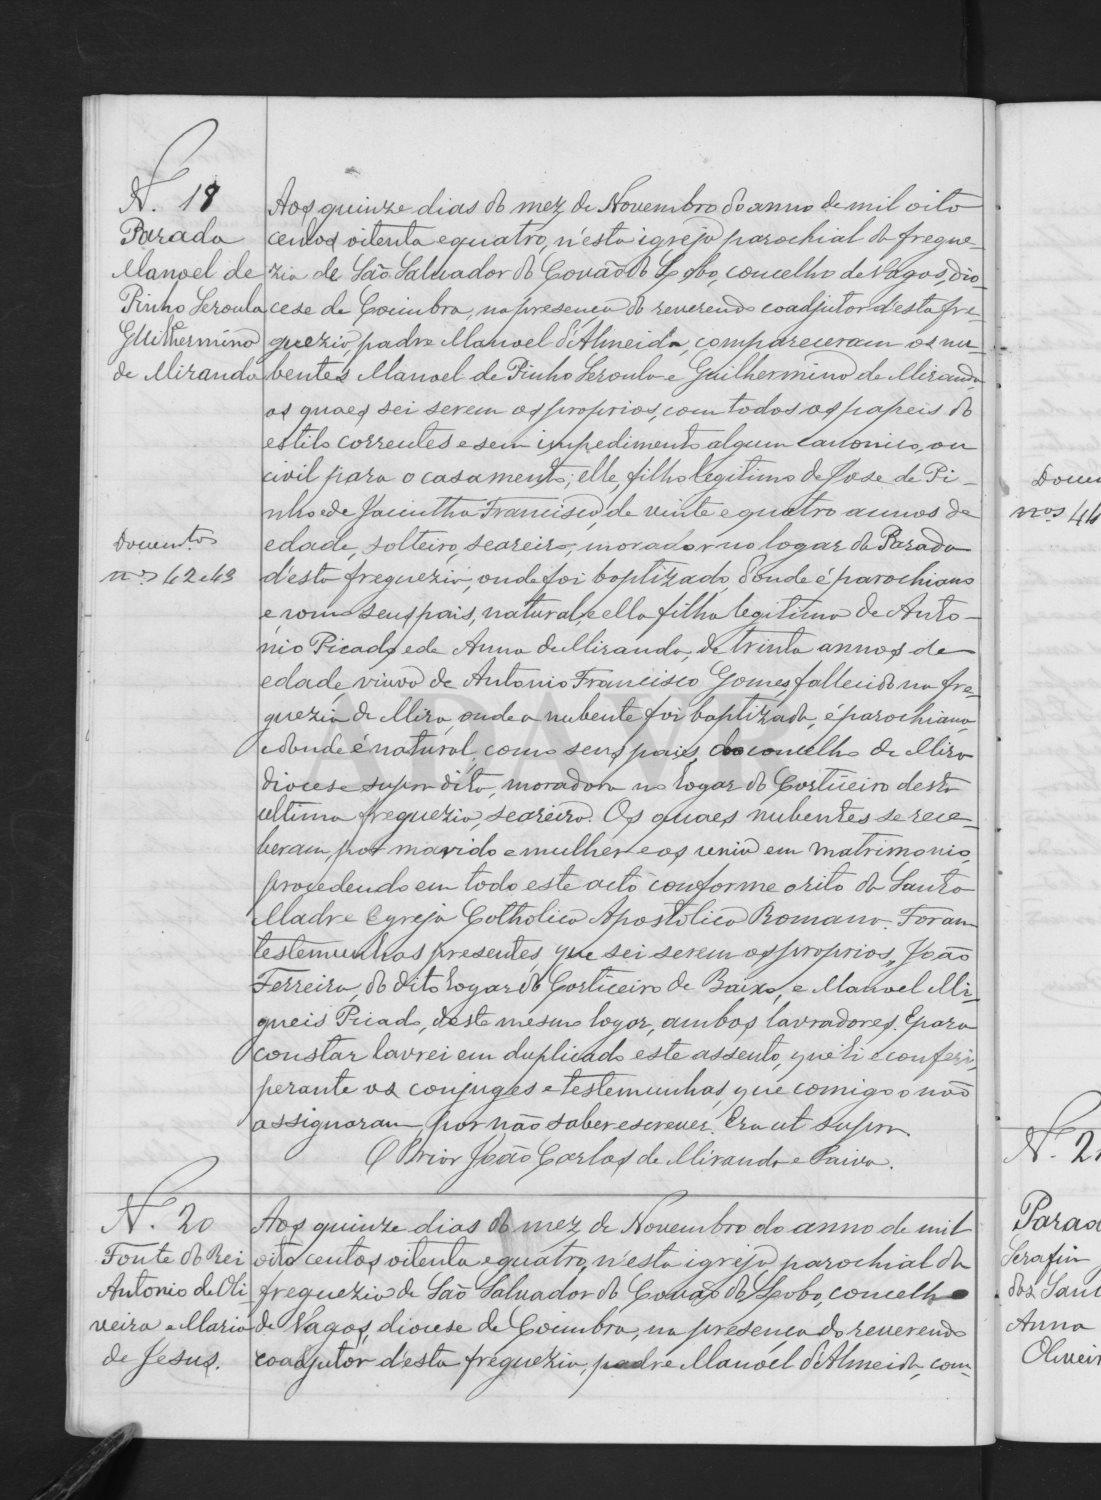 N. 19
Parada
Manoel de
Pinho Seroula
Guilhermina
de Miranda
Documentos
nos 42 e 43
Aos quinze dias do mez de Novembro do anno de mil oito
centos oitenta e quatro, n'esta igreja parochial da fregue-
zia de São Salvador do Covão do Lobo, concelho de Vagos, dio-
cese de Coimbra, na presença do reverendo coadjutor d'esta fre-
guezia, padre Manoel d'Almeida, compareceram os nu-
bentes Manoel de Pinho Seroula e Guilhermina de Miranda
os quaes sei serem os proprios, com todos os papeis do
estilo correntes e sem impedimento algum canonico, ou
civil para o casamento; elle, filho legitimo de Jose de Pi-
nho e de Jacintha Francisca, de vinte e quatro annos de
edade, solteiro, seareiro, morador no logar da Parada
d'esta freguezia, onde foi baptizado, donde é parochiano
e, como seus pais, natural, e ella filha legitima de Anto-
nio Picado e de Anna de Miranda, de trinta annos de
edade, viuva de Antonio Francisco Gomes, fallecido na fre-
guezia de Mira, onde a nubente foi baptizada, é parochiana
e donde é natural, como seus pais, do concelho de Mira
diocese supra dita, moradora no logar do Corticeiro desta
ultima freguezia, seareira. Os quaes nubentes se rece-
beram por marido e mulher e os uniu em matrimonio,
procedendo em todo este acto conforme o rito da Santa
Madre Egreja Catholica Apostolica Romana. Foram
testemunhas presentes, que sei serem os proprios, João
Ferreira, do dito logar do Corticeiro de Baixo, e Manoel Mi-
gueis Picado, deste mesmo logar, ambos lavradores. E para
constar lavrei em duplicado este assento, que li e conferi,
perante os conjuges e testemunhas, que comigo o não
assignaram por não saber escrever. Era ut supra
O Prior João Carlos de Miranda e Paiva.
N. 20
Fonte do Rei
Antonio de Oli-
veira e Maria
de Jesus.
Aos quinze dias do mez de Novembro do anno de mil
oito centos oitenta e quatro, n'esta igreja parochial da
freguezia de São Salvador do Covão do Lobo, concelho
de Vagos, diocese de Coimbra, na presença do reverendo
coadjutor d'esta freguezia, padre Manoel d'Almeida, com-
Docum
nos 44
N. 21
Parad
Serafin
dos Sant
Anna
Oliveir
ADAVR